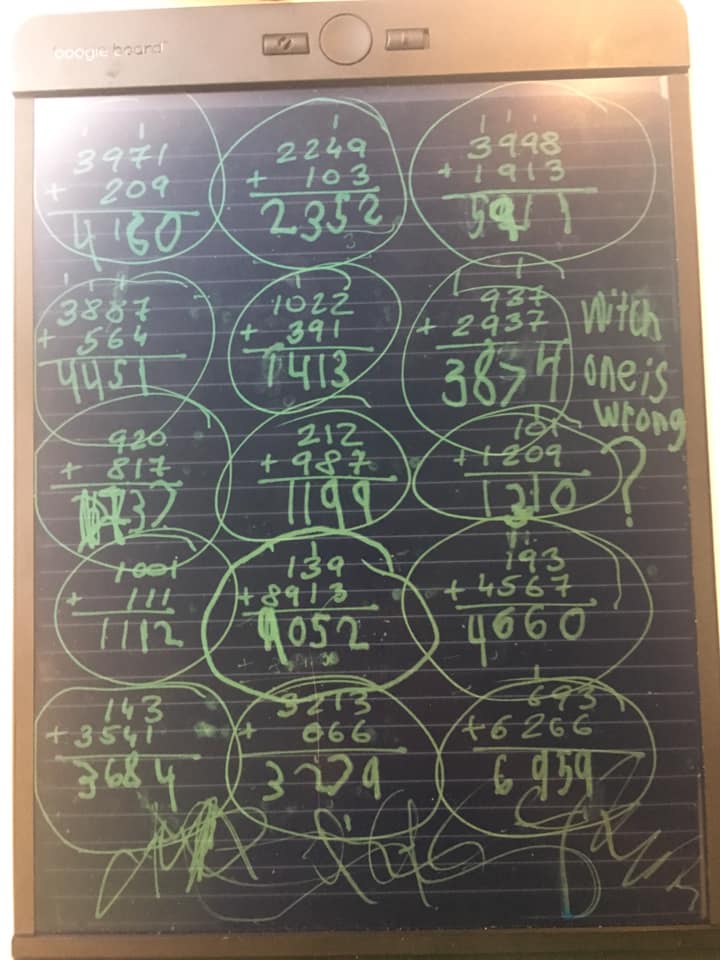 boogie board
1 1 1 1 1 1
3971 2249 3998
+ 209 + 103 + 1913
4180 2352 5911
1 1 1 1 1
3887 1022 937
+ 564 + 391 + 2937
4451 1413 3874
witch
one is
wrong
?
920 212 101
+ 817 + 987 + 1209
1737 1199 1310
1 1 1
1001 139 193
+ 111 + 8913 + 4567
1112 9052 4660
1
143 3213 693
+ 3541 + 066 + 6266
3684 3279 6959